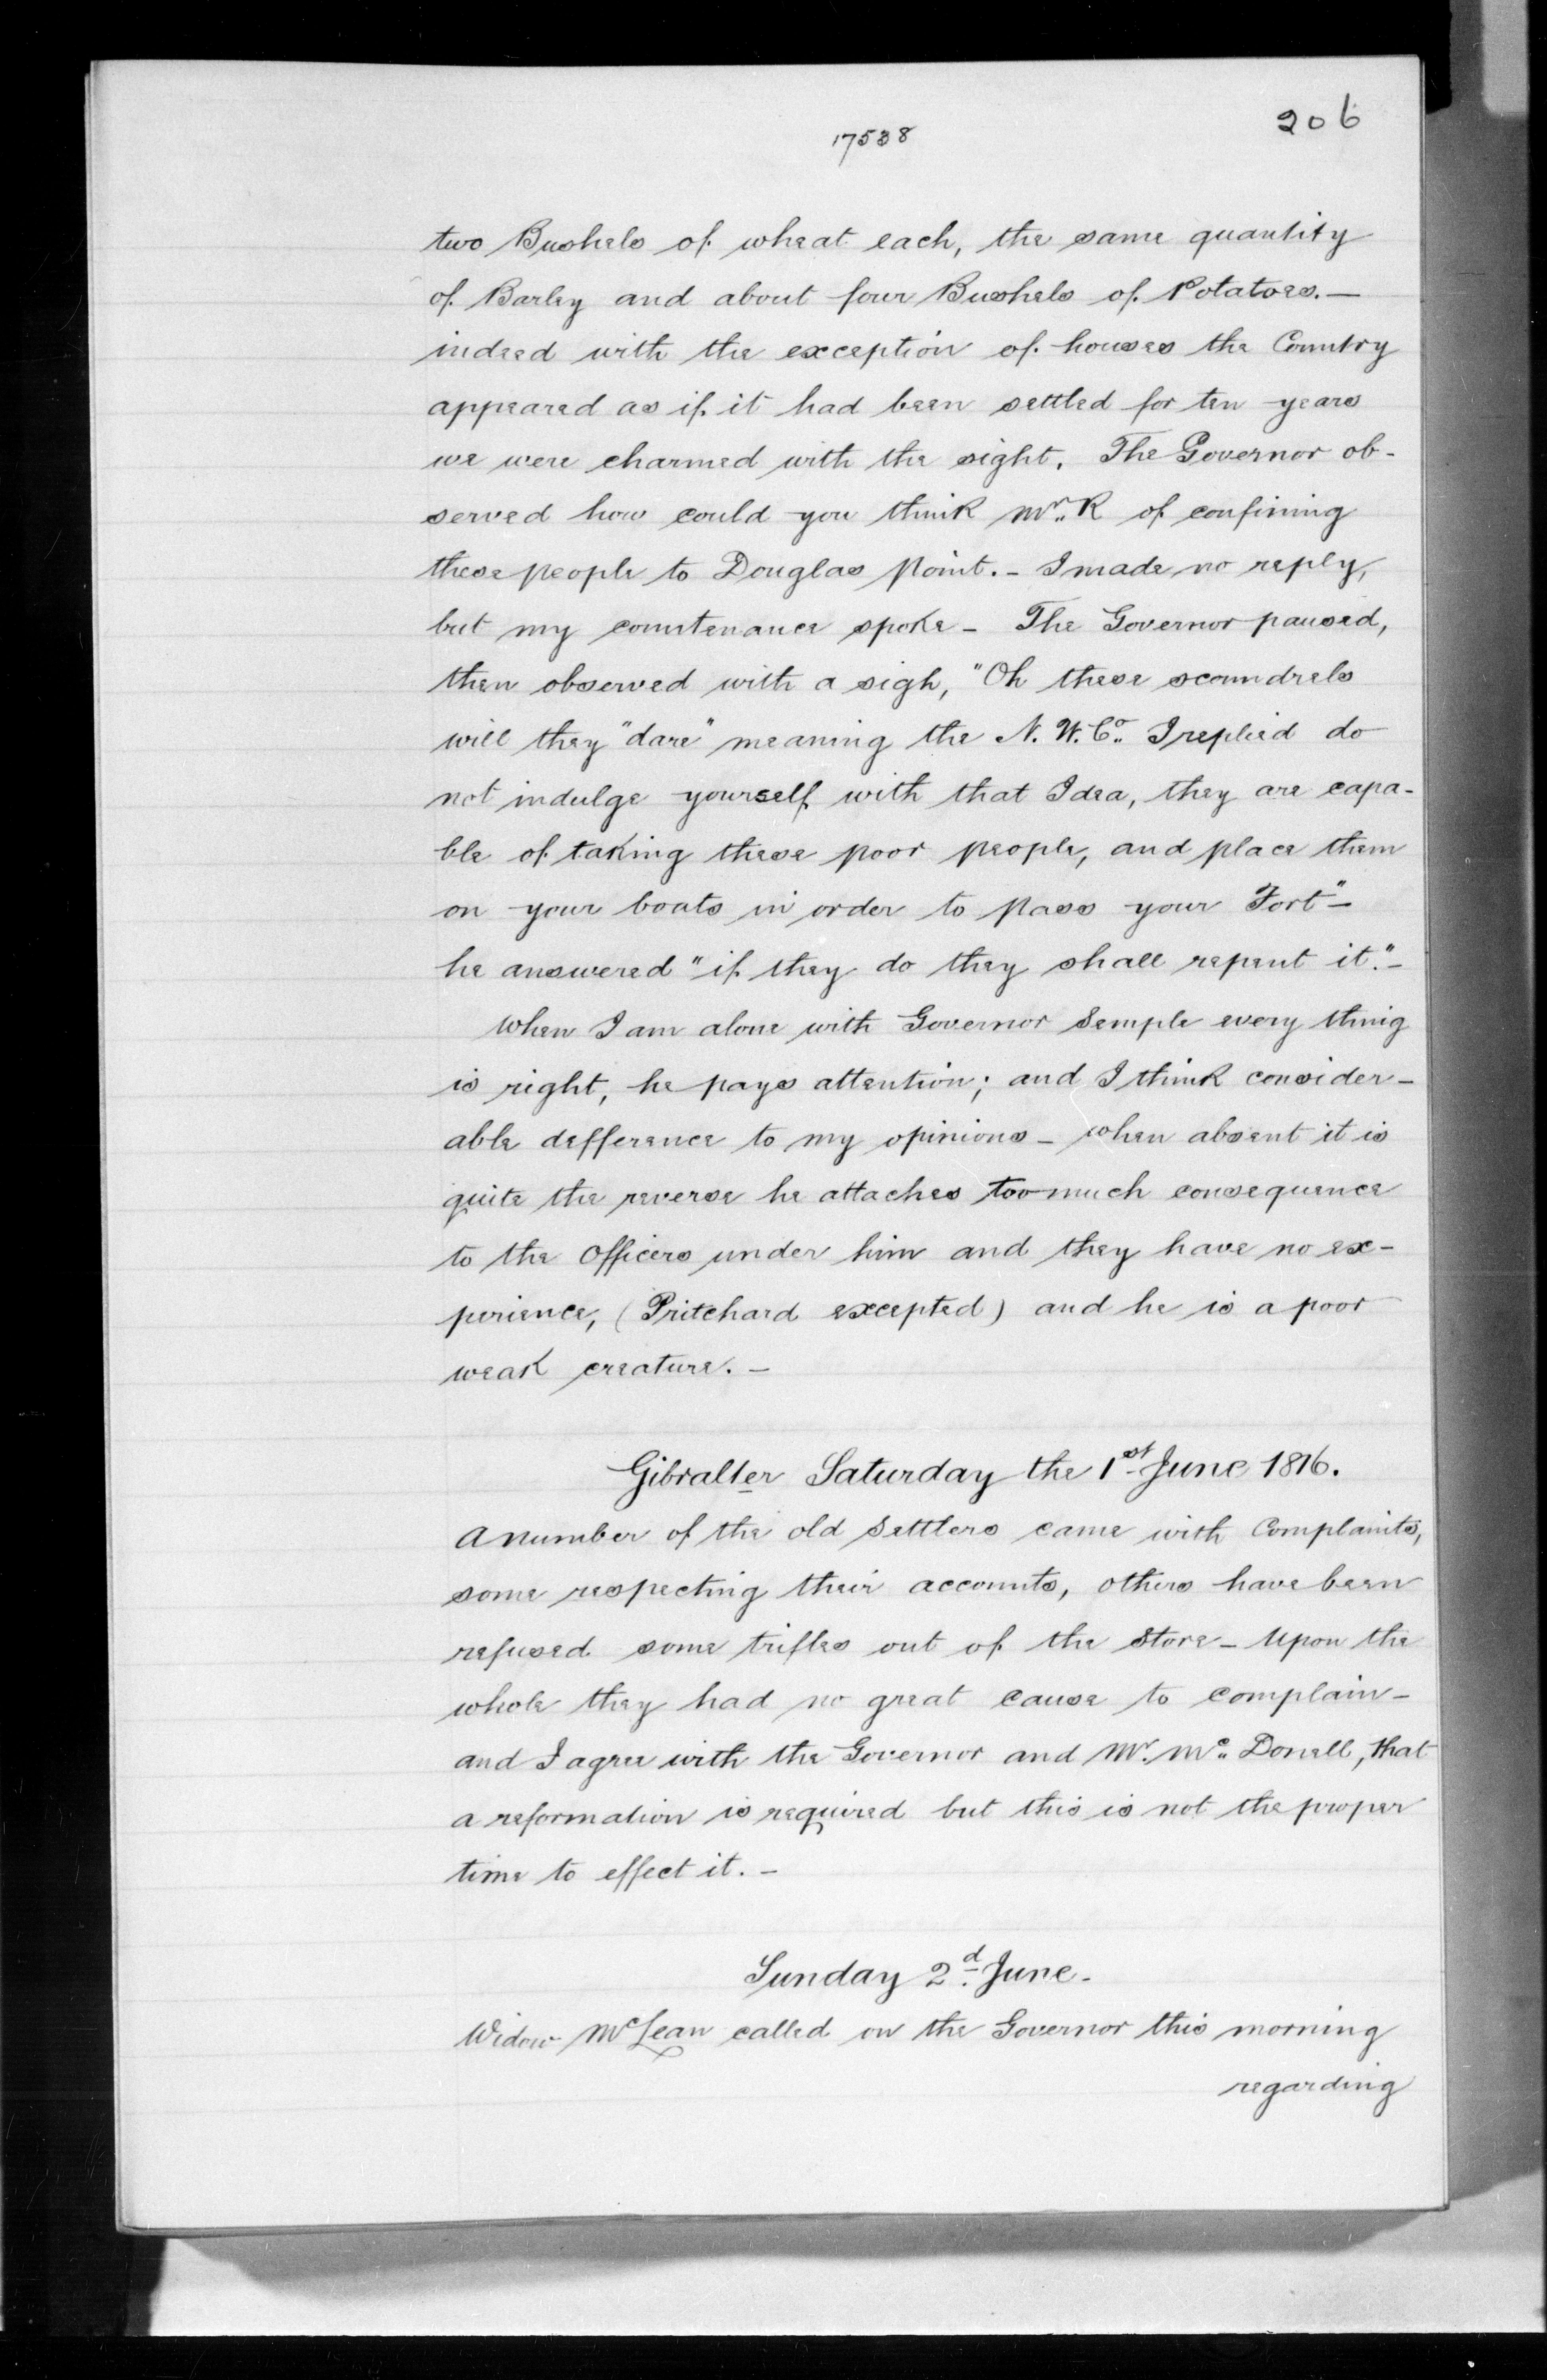 206
17538
two Bushels of wheat each, the same quantity
of Barley and about four Bushels of Potatoes. —
indeed with the exception of houses the Country
appeared as if it had been settled for ten years
we were charmed with the sight. The Governor ob-
served how could you think Mr. R of confining
these people to Douglas Point. - I made no reply,
but my countenance spoke - The Governor paused,
then observed with a sigh, "Oh these scoundrels
will they "dare" meaning the N. W. Co. I replied do
not indulge yourself with that Idea, they are capa-
ble of taking these poor people, and place them
on your boats in order to pass your Fort" -
he answered "if they do they shall repent it." -
When I am alone with Governor Semple every thing
is right, he pays attention; and I think consider-
able defference to my opinions - when absent it is
quite the reverse he attaches too much consequence
to the Officers under him and they have no ex-
perience, (Pritchard excepted) and he is a poor
weak creature. -
Gibralter Saturday the 1st June 1816.
A number of the old Settlers came with Complaints,
some respecting their accounts, others have been
refused some trifles out of the Store - Upon the
whole they had no great cause to complain -
and I agree with the Governor and Mr. Mc. Donell, that
a reformation is required but this is not the proper
time to effect it. -
Sunday 2d. June -
Widow McLean called on the Governor this morning
regarding